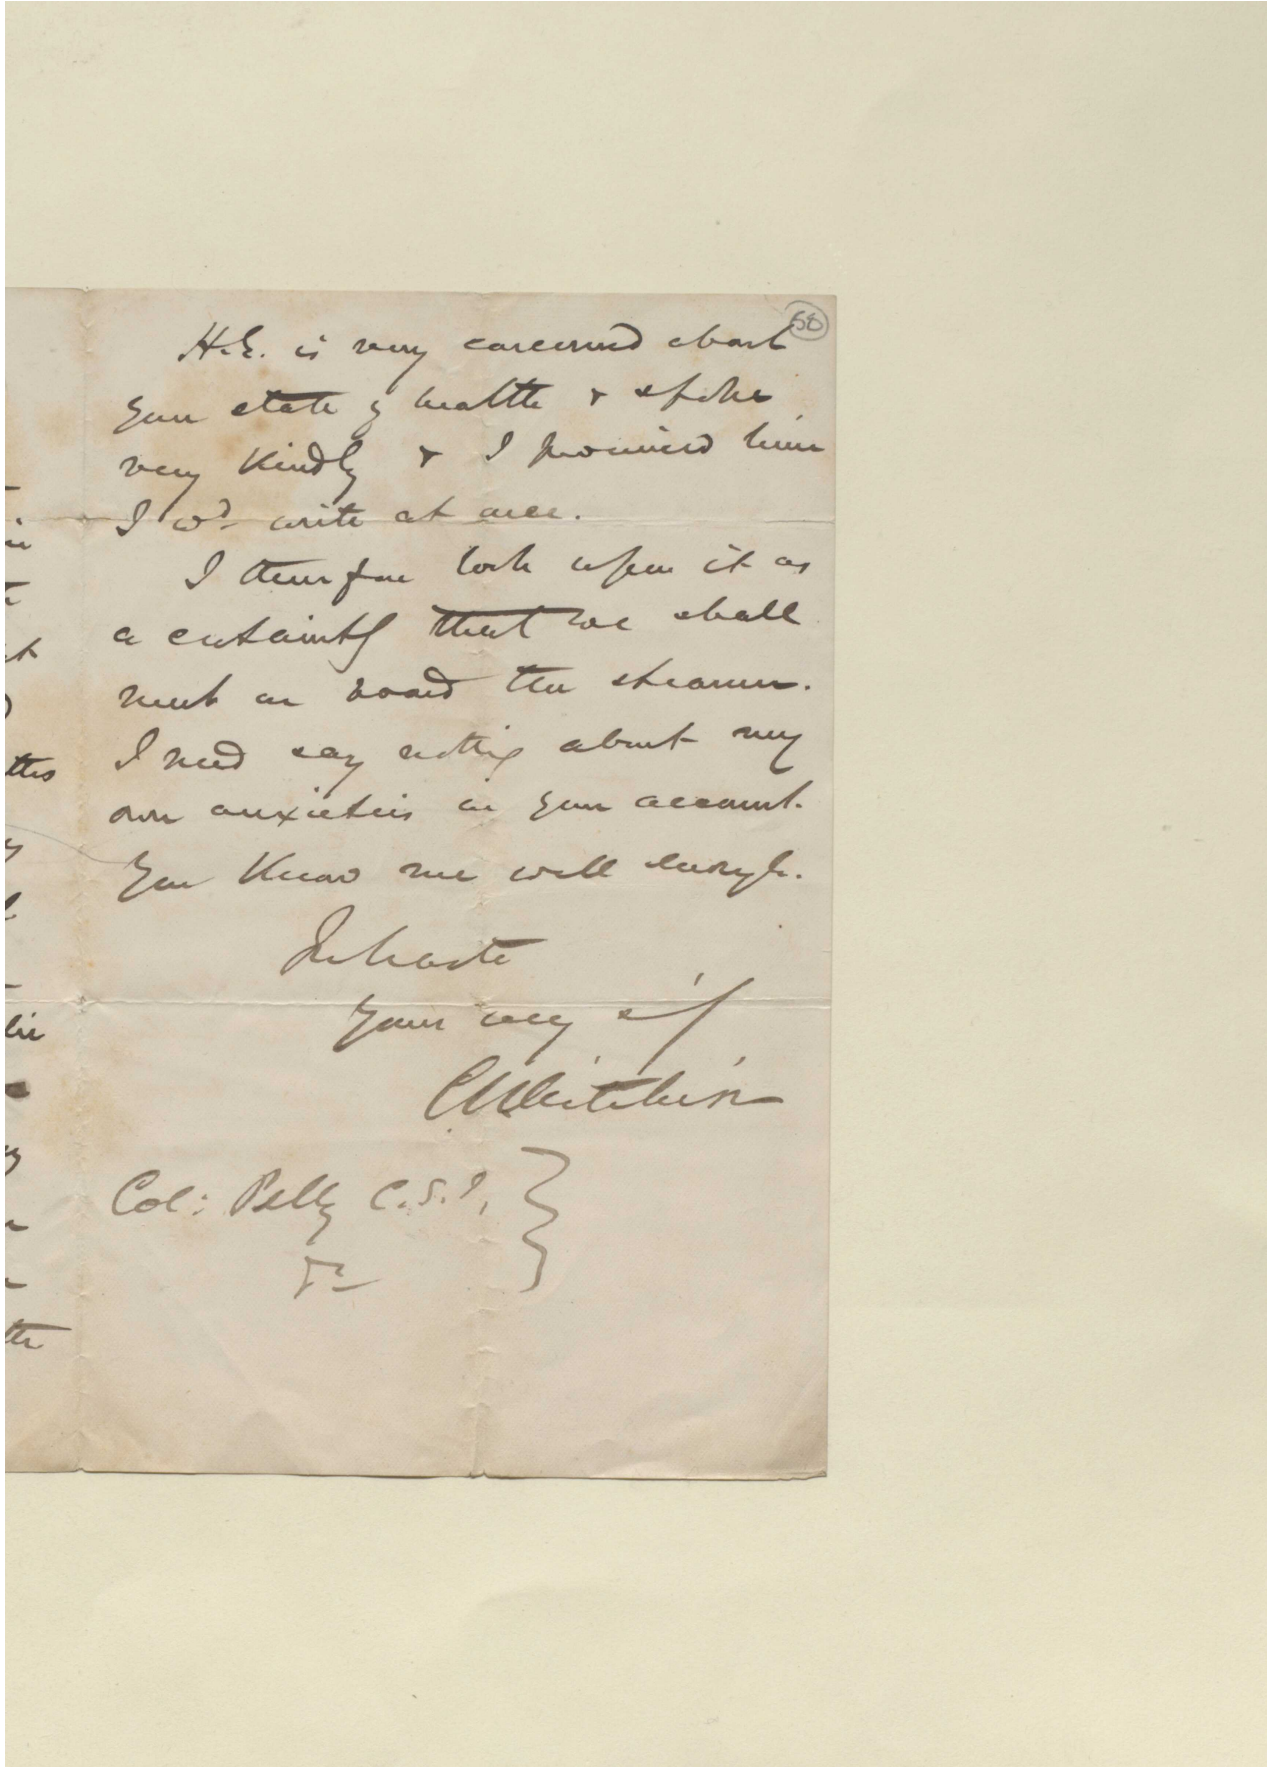 58
H.E. is very concerned about
your state of health & spoke
very kindly & I promised him
I wd. write at once.
I therefore look upon it as
a certainty that we shall
meet on board the steamer.
I need say nothing about my
own anxieties on your account.
You know me well enough.
In haste
Yours very sy
CUAitchison
Col: Pelly C.S.I.
&c
ttis
ttr